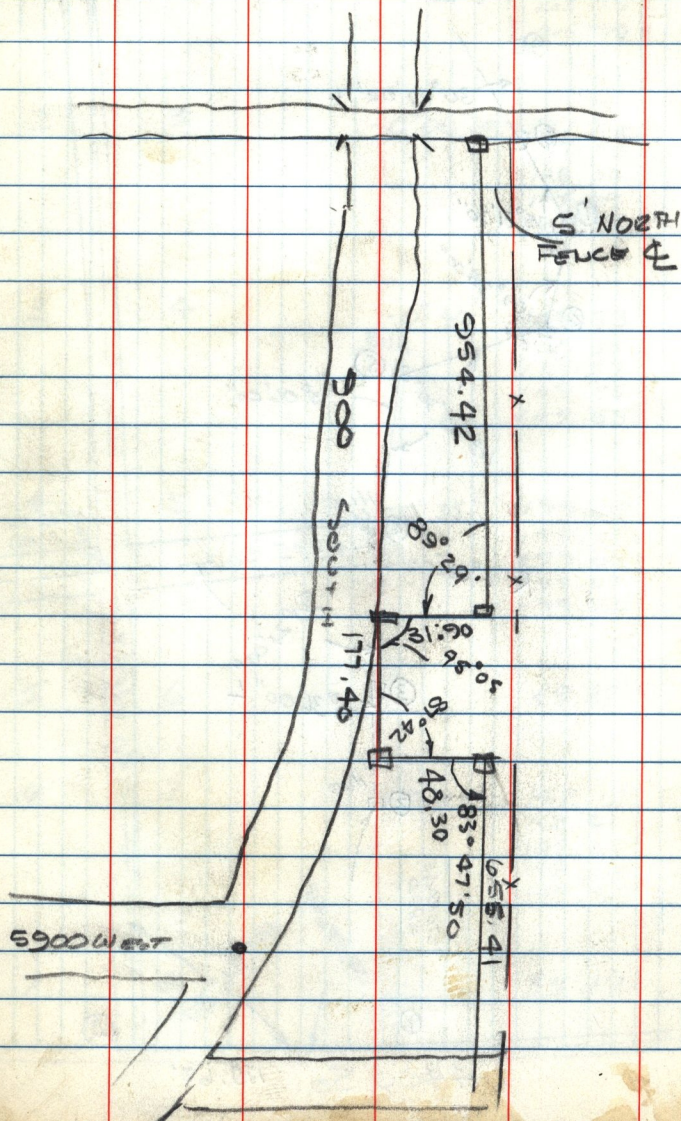 5' NORTH
FENCE ℄
954.42
900 SOUTH
89° 29'
31.90
95° 05
177.40
85° 42
48.30
83° 47' 50
655.41
5900 West